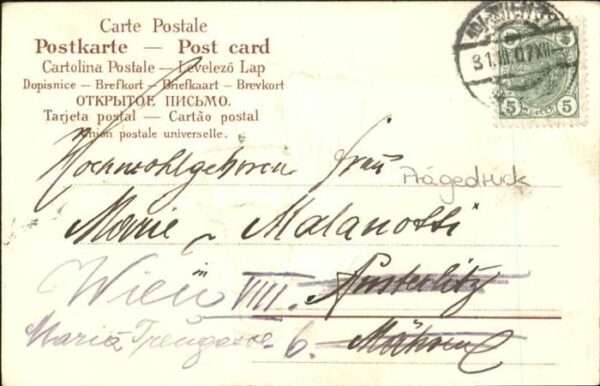 Carte Postale
Postkarte — Post card
Cartolina Postale — Levelező Lap
Dopisnice — Brefkort — Briefkaart — Brevkort
ОТКРЫТОЕ ПИСЬМО.
Tarjeta postal — Cartão postal
Union postale universelle.
WIEN
31.III.07
5 5
Hochwohlgeboren Frau
Prägedruck
Marie Malanotti
in
Wien VIII. Austerlitz
Maria Treugasse 6. Mähren